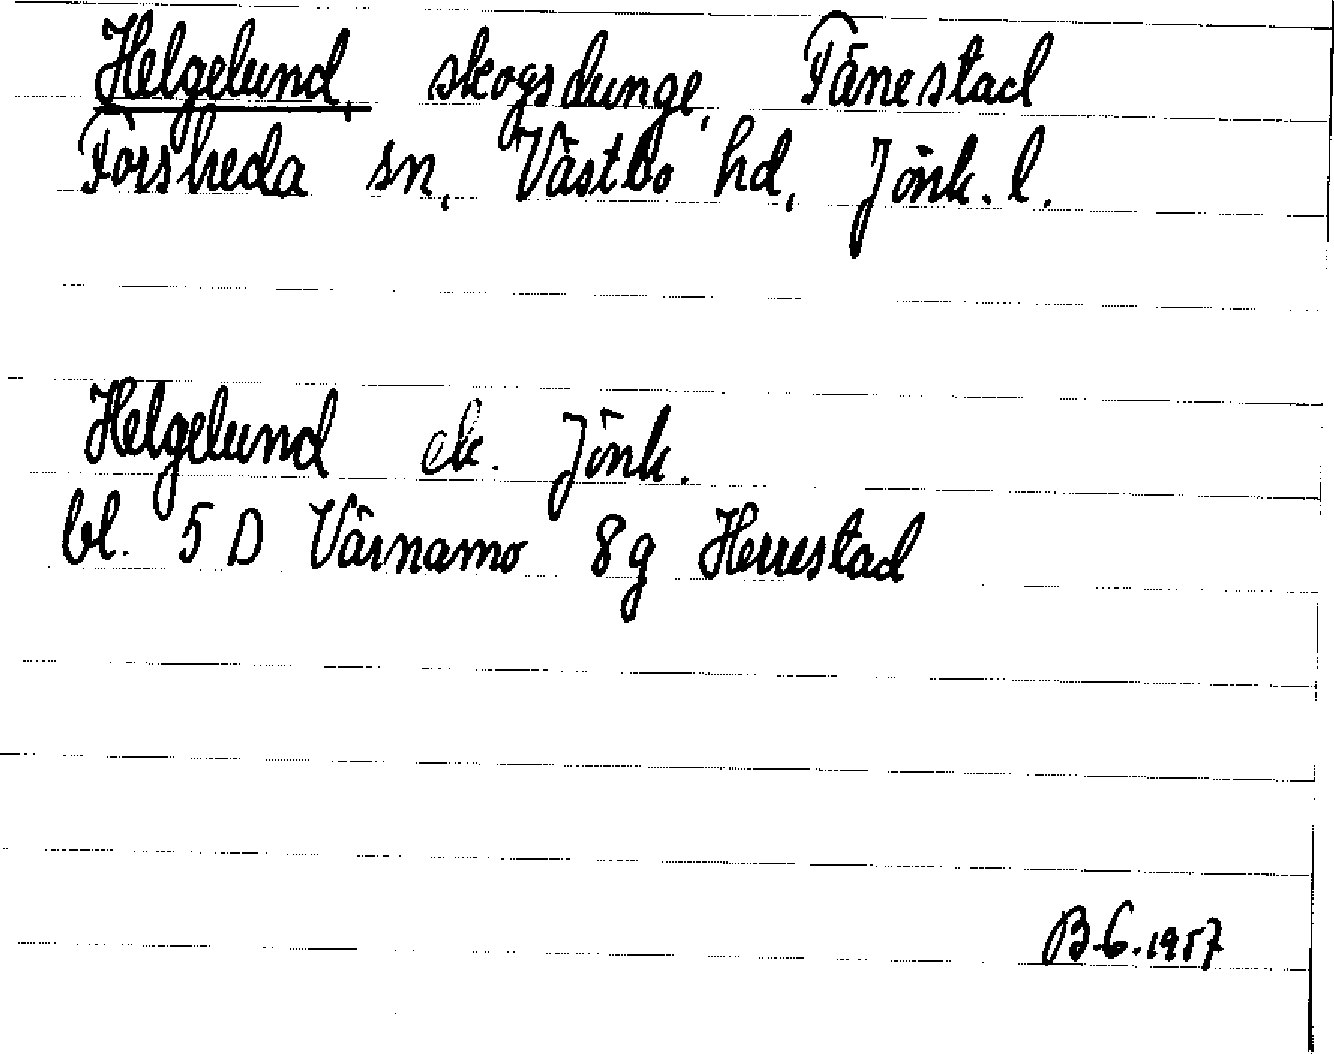 Helgelund, skogsdunge, Fånestad
Forsheda sn, Västbo hd, Jönk. l.
Helgelund ek. Jönk.
bl. 5 D Värnamo 8g Herrestad
B.G. 1957